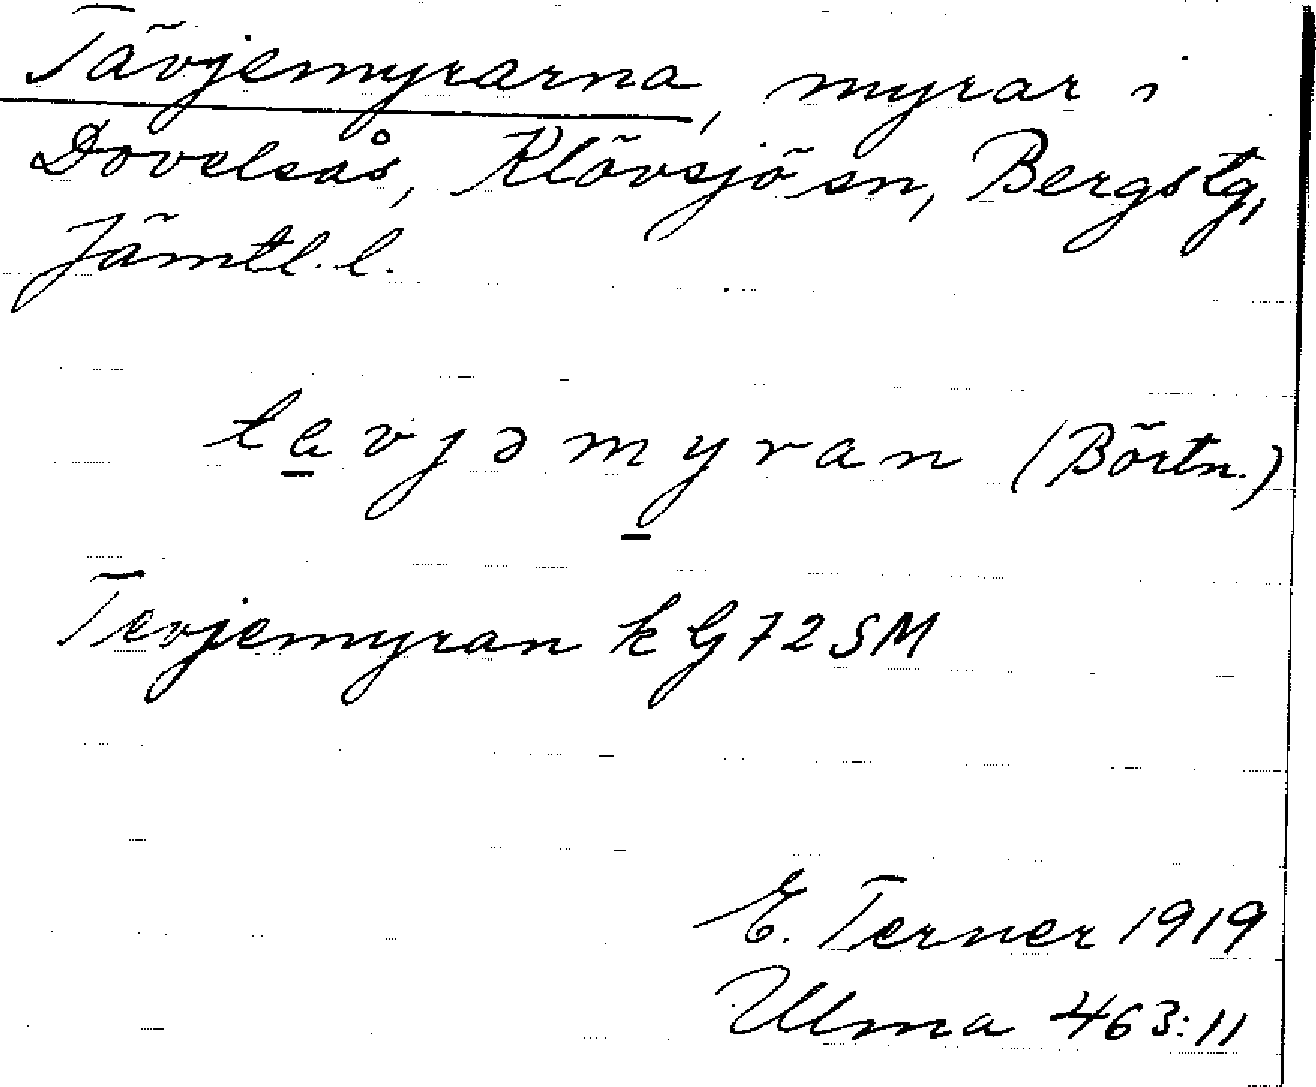 Tävjemyrarna, myrar i
Dovelsås, Klövsjö sn, Bergs tg,
Jämtl. l.
tavjəmyran (Börtn.)
Tevjemyran k G 72 SM
E. Terner 1919
Ulma 463:11